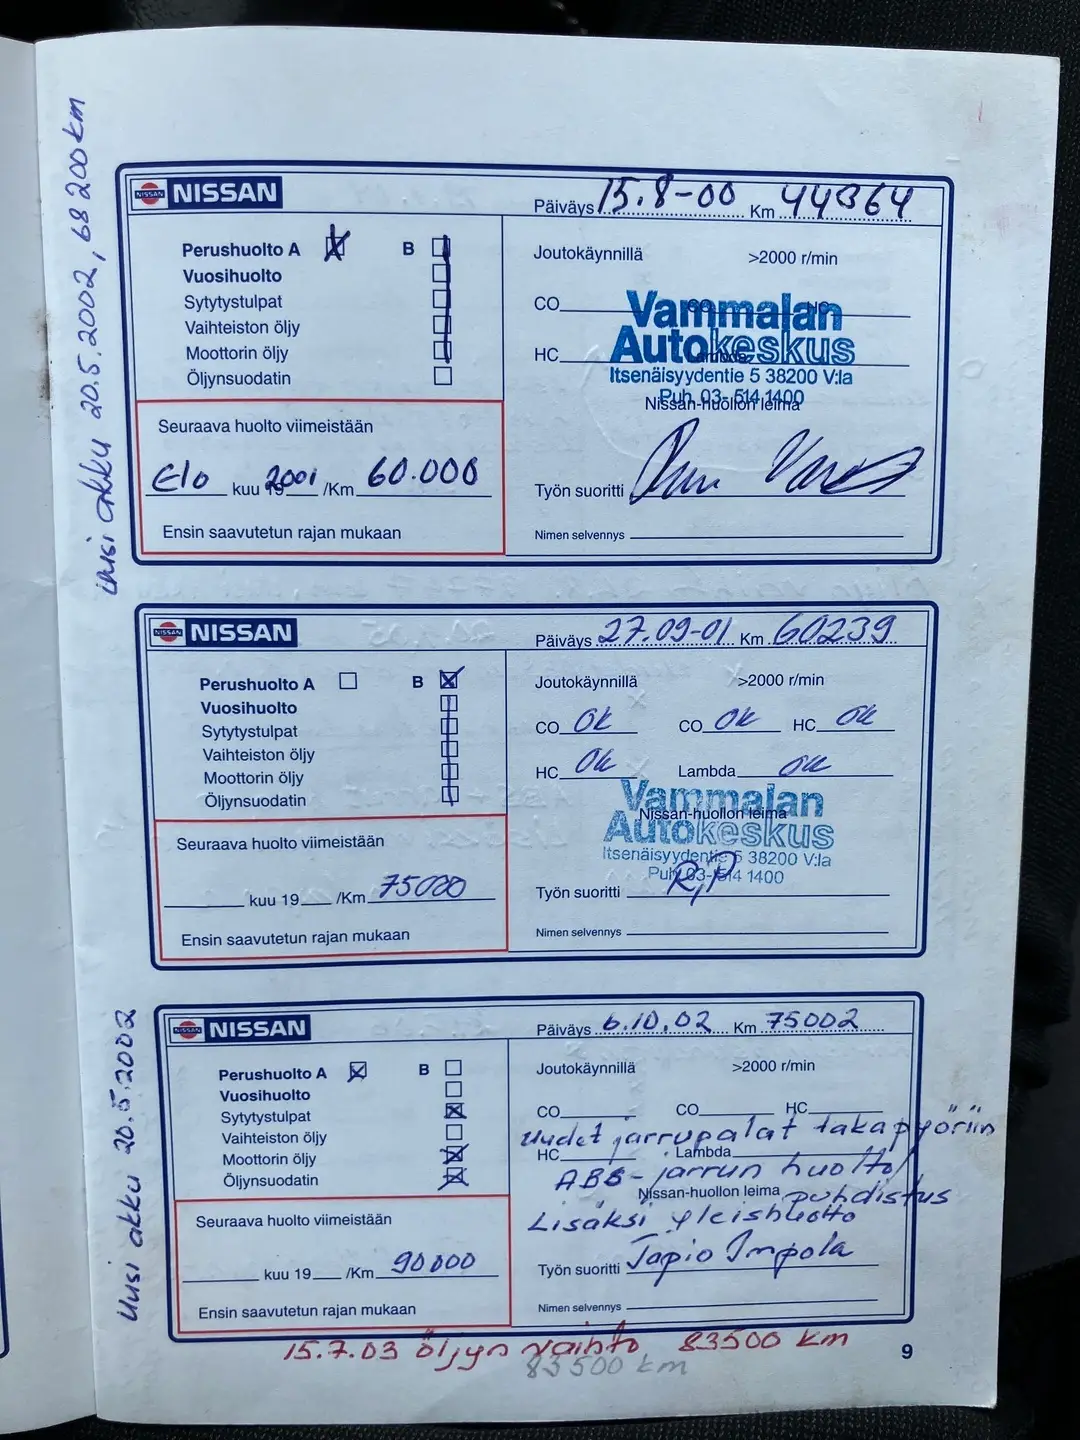 uusi akku 20.5.2002, 68200 km
NISSAN NISSAN
Päiväys 15.8-00 Km 44364
Perushuolto A B
Vuosihuolto
Sytytystulpat
Vaihteiston öljy
Moottorin öljy
Öljynsuodatin
Seuraava huolto viimeistään
Elo kuu 19 2001 /Km 60.000
Ensin saavutetun rajan mukaan
Joutokäynnillä >2000 r/min
CO CO HC
HC Lambda
Vammalan
Autokeskus
Itsenäisyydentie 5 38200 V:la
Puh. 03- 514 1400
Nissan-huollon leima
Työn suoritti
Nimen selvennys
NISSAN NISSAN
Päiväys 27.09-01 Km 60239
Perushuolto A B
Vuosihuolto
Sytytystulpat
Vaihteiston öljy
Moottorin öljy
Öljynsuodatin
Seuraava huolto viimeistään
kuu 19 /Km 75000
Ensin saavutetun rajan mukaan
Joutokäynnillä >2000 r/min
CO Ok CO Ok HC Ok
HC Ok Lambda Ok
Vammalan
Nissan-huollon leima
Autokeskus
Itsenäisyydentie 5 38200 V:la
Puh. 03-514 1400
Työn suoritti R,P
Nimen selvennys
Uusi akku 20.5.2002
NISSAN NISSAN
Päiväys 6.10.02 Km 75002
Perushuolto A B
Vuosihuolto
Sytytystulpat
Vaihteiston öljy
Moottorin öljy
Öljynsuodatin
Seuraava huolto viimeistään
kuu 19 /Km 90000
Ensin saavutetun rajan mukaan
Joutokäynnillä >2000 r/min
CO CO HC
Uudet jarrupalat takapyöriin
HC Lambda
ABS-jarrun huolto/
Nissan-huollon leima puhdistus
Lisäksi yleishuolto
Työn suoritti Tapio Impola
Nimen selvennys
15.7.03 öljyn vaihto 83500 km
83500 km
9